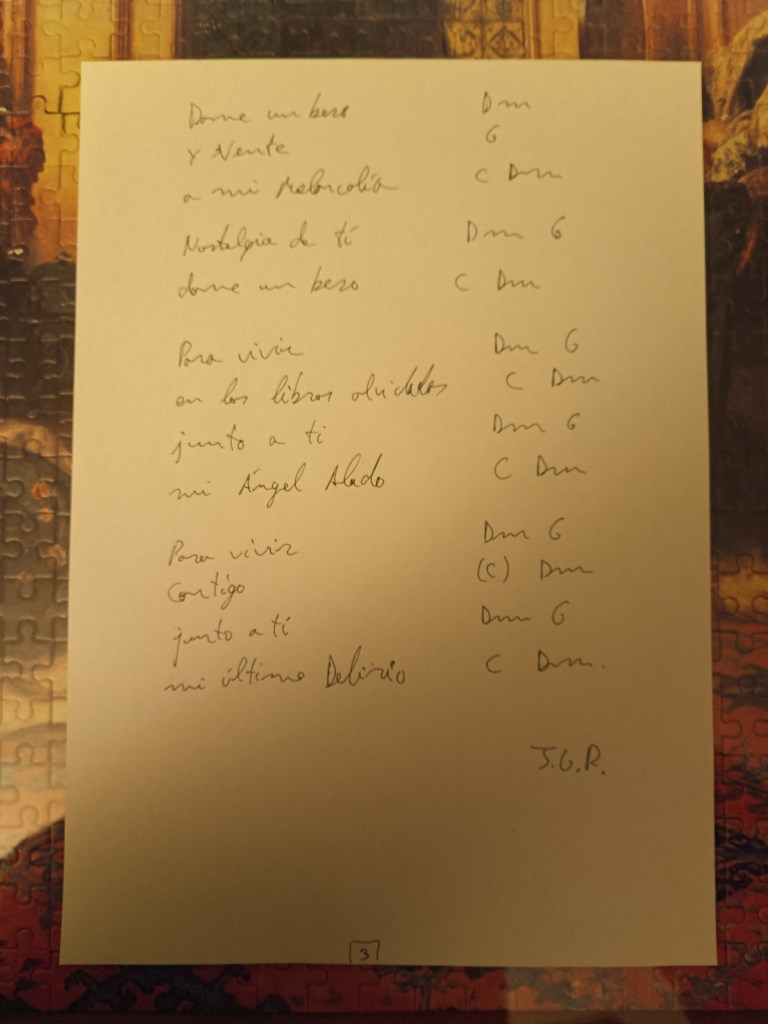 Dame un beso Dm
y Vente G
a mi Melancolía C Dm
Nostalgia de tí Dm G
dame un beso C Dm
Para vivir Dm G
en los libros olvidados C Dm
junto a ti Dm G
mi Ángel Alado C Dm
Para vivir Dm G
Contigo (C) Dm
junto a tí Dm G
mi último Delirio C Dm.
J.G.R.
3